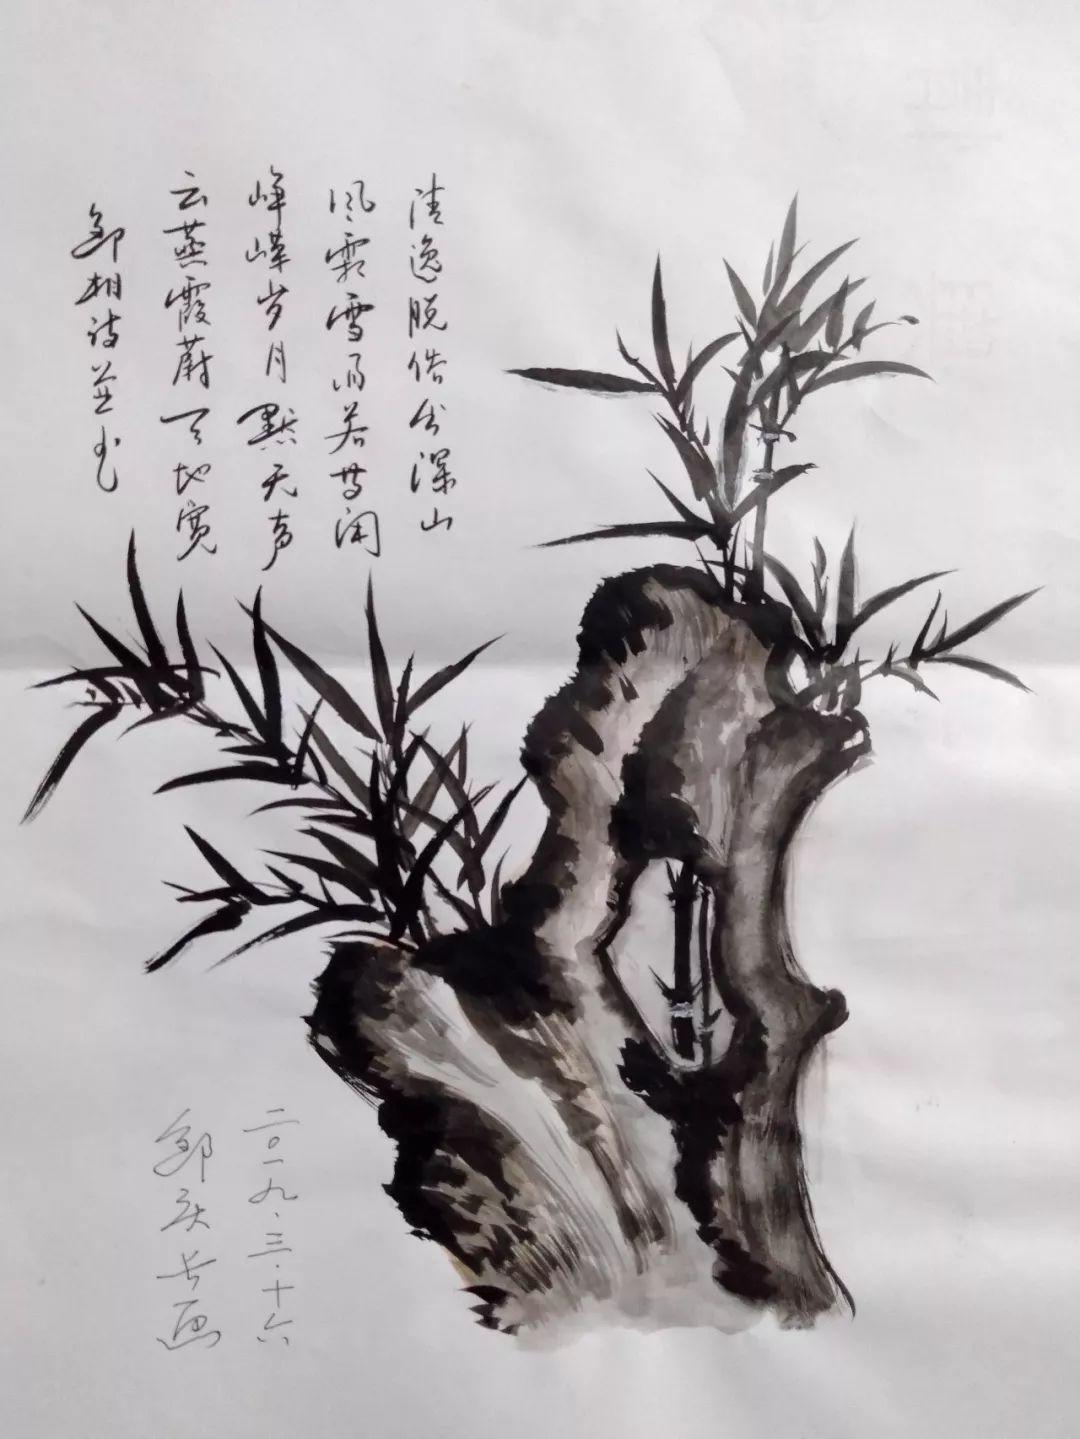 清逸脱俗出深山
风霜雪雨若等闲
峥嵘岁月默无声
云蒸霞蔚天地宽
邹相诗并书
二〇一九.三.十六
邹庆长画